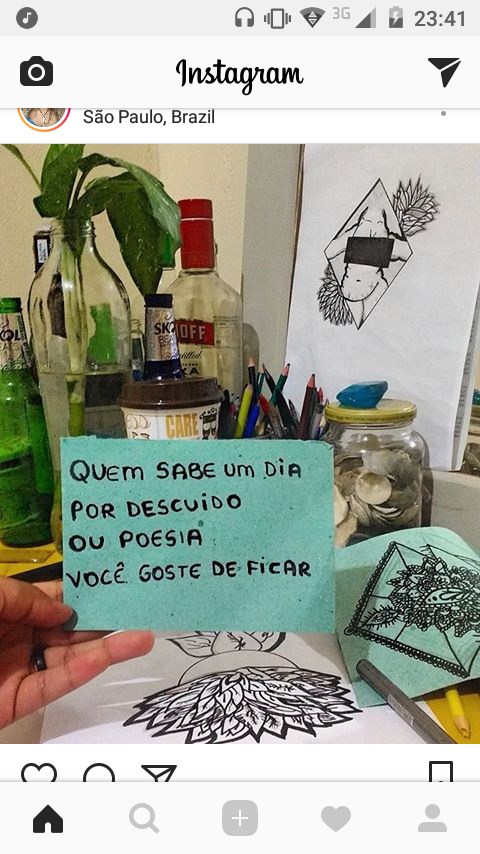 3G 23:41
Instagram
São Paulo, Brazil
OFF
CARE
QUEM SABE UM DIA
POR DESCUIDO
OU POESIA
VOCÊ GOSTE DE FICAR